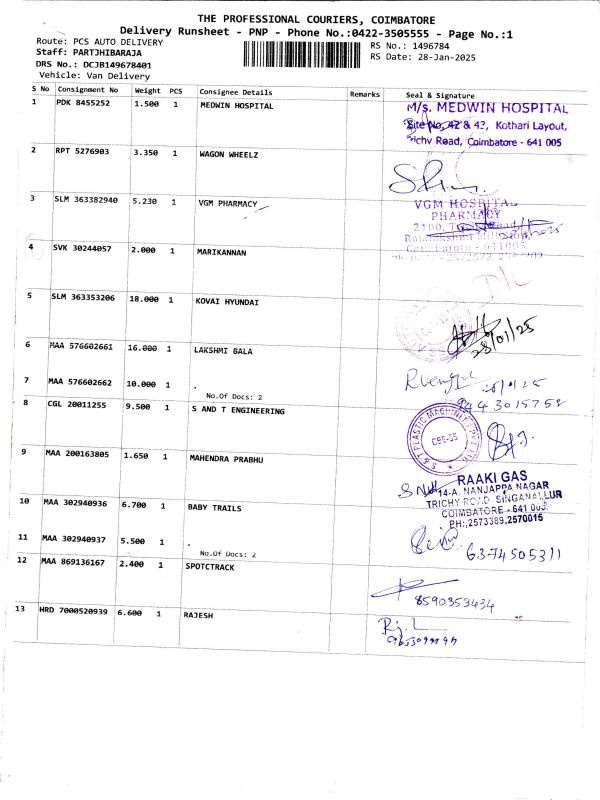 THE PROFESSIONAL COURIERS, COIMBATORE
Delivery Runsheet - PNP - Phone No.:0422-3505555 - Page No.:1
Route: PCS AUTO DELIVERY
RS No.: 1496784
Staff: PARTJHIBARAJA
RS Date: 28-Jan-2025
DRS No.: DCJB149678401
Vehicle: Van Delivery
S No Consignment No Weight PCS Consignee Details Remarks Seal & Signature
1 PDK 8455252 1.500 1 MEDWIN HOSPITAL
M/s. MEDWIN HOSPITAL
Site No, 42 & 43, Kothari Layout,
Trichy Road, Coimbatore - 641 005
2 RPT 5276903 3.350 1 WAGON WHEELZ
3 SLM 363382940 5.230 1 VGM PHARMACY
VGM HOSPITAL
PHARMACY
2100,
4 SVK 30244057 2.000 1 MARIKANNAN
5 SLM 363353206 18.000 1 KOVAI HYUNDAI
28/01/25
6 MAA 576602661 16.000 1 LAKSHMI BALA
7 MAA 576602662 10.000 1 .
No.Of Docs: 2
9443015758
8 CGL 20011255 9.500 1 S AND T ENGINEERING
S & T PLASTIC MACHINES PVT LTD
CBE-05
9 MAA 200163805 1.650 1 MAHENDRA PRABHU
RAAKI GAS
14-A, NANJAPPA NAGAR
TRICHY ROAD SINGANALLUR
COIMBATORE - 641 005.
PH:,2573389,2570015
10 MAA 302940936 6.700 1 BABY TRAILS
11 MAA 302940937 5.500 1 .
No.Of Docs: 2
6374505311
12 MAA 869136167 2.400 1 SPOTCTRACK
8590353434
13 HRD 7000520939 6.600 1 RAJESH